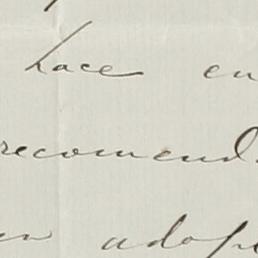 hace en
recomend
en adop